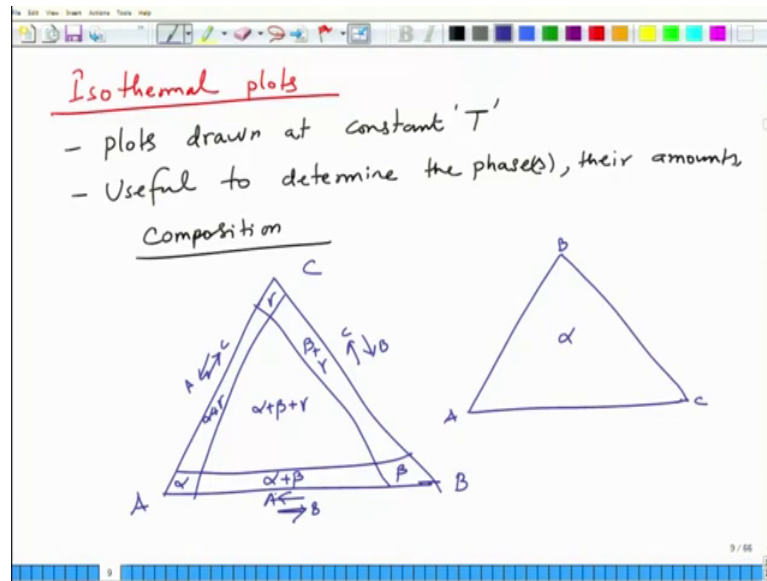 File Edit View Insert Actions Tools Help
Isothermal plots
- plots drawn at constant 'T'
- Useful to determine the phase(s), their amounts
Composition
C
B
γ
β+γ
C
B
C
A
α+γ
α+β+γ
α
A
C
α
α+β
β
A
B
A
B
9/66
9